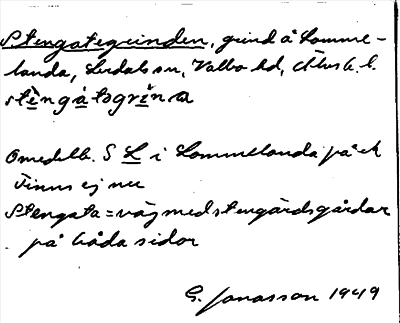 Stengategrinden, grind å Lomme-
landa, Lerdals sn, Valbo hd, Älvsb. l.
stèngatogrı̊na
Omedelb. S L i Lommelanda på ek
Finns ej nu
Stengata = väg med stengärdsgårdar
på båda sidor
G. Jonasson 1949